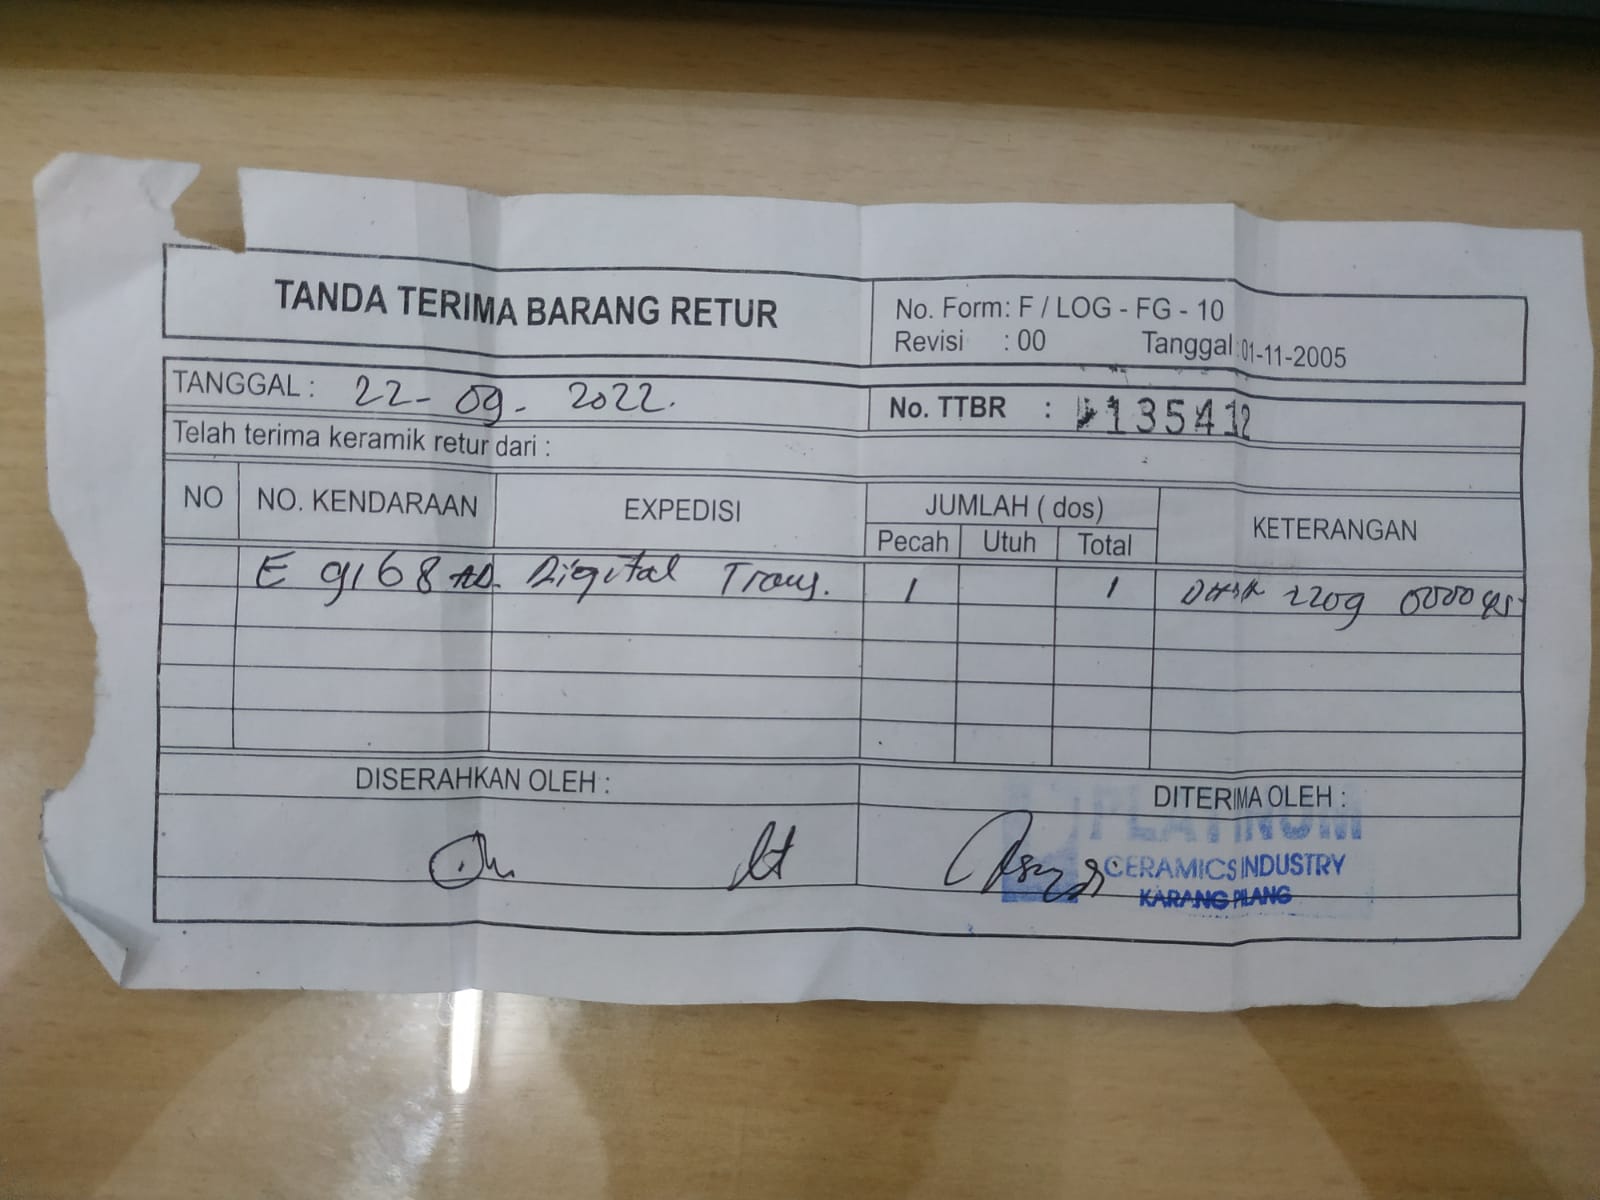 TANDA TERIMA BARANG RETUR
No. Form: F / LOG - FG - 10
Revisi : 00 Tanggal :01-11-2005
TANGGAL : 22-09-2022.
No. TTBR : 135412
Telah terima keramik retur dari :
NO NO. KENDARAAN EXPEDISI JUMLAH ( dos) KETERANGAN
Pecah Utuh Total
E 9168 AD. Digital Trans. 1 1 2209 000045
DISERAHKAN OLEH : DITERIMA OLEH :
PLATINUM
CERAMICS INDUSTRY
KARANG PILANG